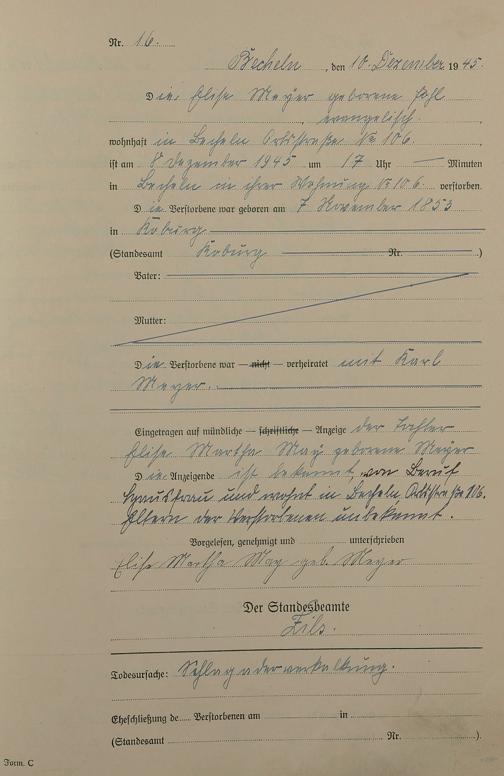 Nr. 16.
Becheln, den 10. Dezember 1945.
Die Elise Meyer geborene Pohl
, evangelisch,
wohnhaft in Becheln Ortsstraße No 106.,
ist am 8 Dezember 1945 um 17 Uhr — Minuten
in Becheln in ihrer Wohnung No 106. verstorben.
Die Verstorbene war geboren am 7 November 1853
in Koburg
(Standesamt Koburg Nr. )
Vater:
Mutter:
Die Verstorbene war — nicht — verheiratet mit Karl
Meyer.
Eingetragen auf mündliche — schriftliche — Anzeige der Tochter
Elise Martha May geborene Meyer
Die Anzeigende ist bekannt, von Beruf
Hausfrau und wohnt in Becheln, Ortsstraße 106.
Eltern der Verstorbenen unbekannt.
Vorgelesen, genehmigt und unterschrieben
Elise Martha May geb. Meyer
Der Standesbeamte
Zils.
Todesursache: Schlagaderverkalkung.
Eheschließung de Verstorbenen am in
(Standesamt Nr. ).
Form. C